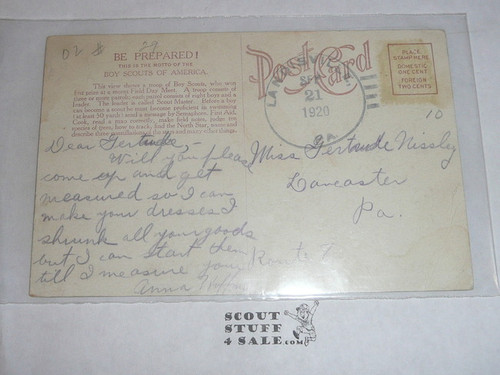 BE PREPARED!
THIS IS THE MOTTO OF THE
BOY SCOUTS OF AMERICA.
This view shows a troop of Boy Scouts, who won
First prize at a recent Field Day Meet. A troop consists of
three or more patrols, each patrol consists of eight boys and a
leader. The leader is called Scout Master. Before a boy
can become a scout he must become proficient in swimming
(at least 50 yards) send a message by Semaphore, First Aid,
Cook, read a map correctly, make field notes, judge
species of trees, how to track, find the North Star, name and
describe three constellations and many other things.
Post Card
LANDISVILLE
SEP
21
1920
PA.
PLACE
STAMP HERE
DOMESTIC
ONE CENT
FOREIGN
TWO CENTS
10
Dear Gertrude,-
Will you please
come up and get
measured so I can
make your dresses I
shrunk all your goods
but I can start them
till I measure you
Anna
Miss Gertrude Nissley
Lancaster
Pa.
Route 8
SCOUT
STUFF
4 SALE.com